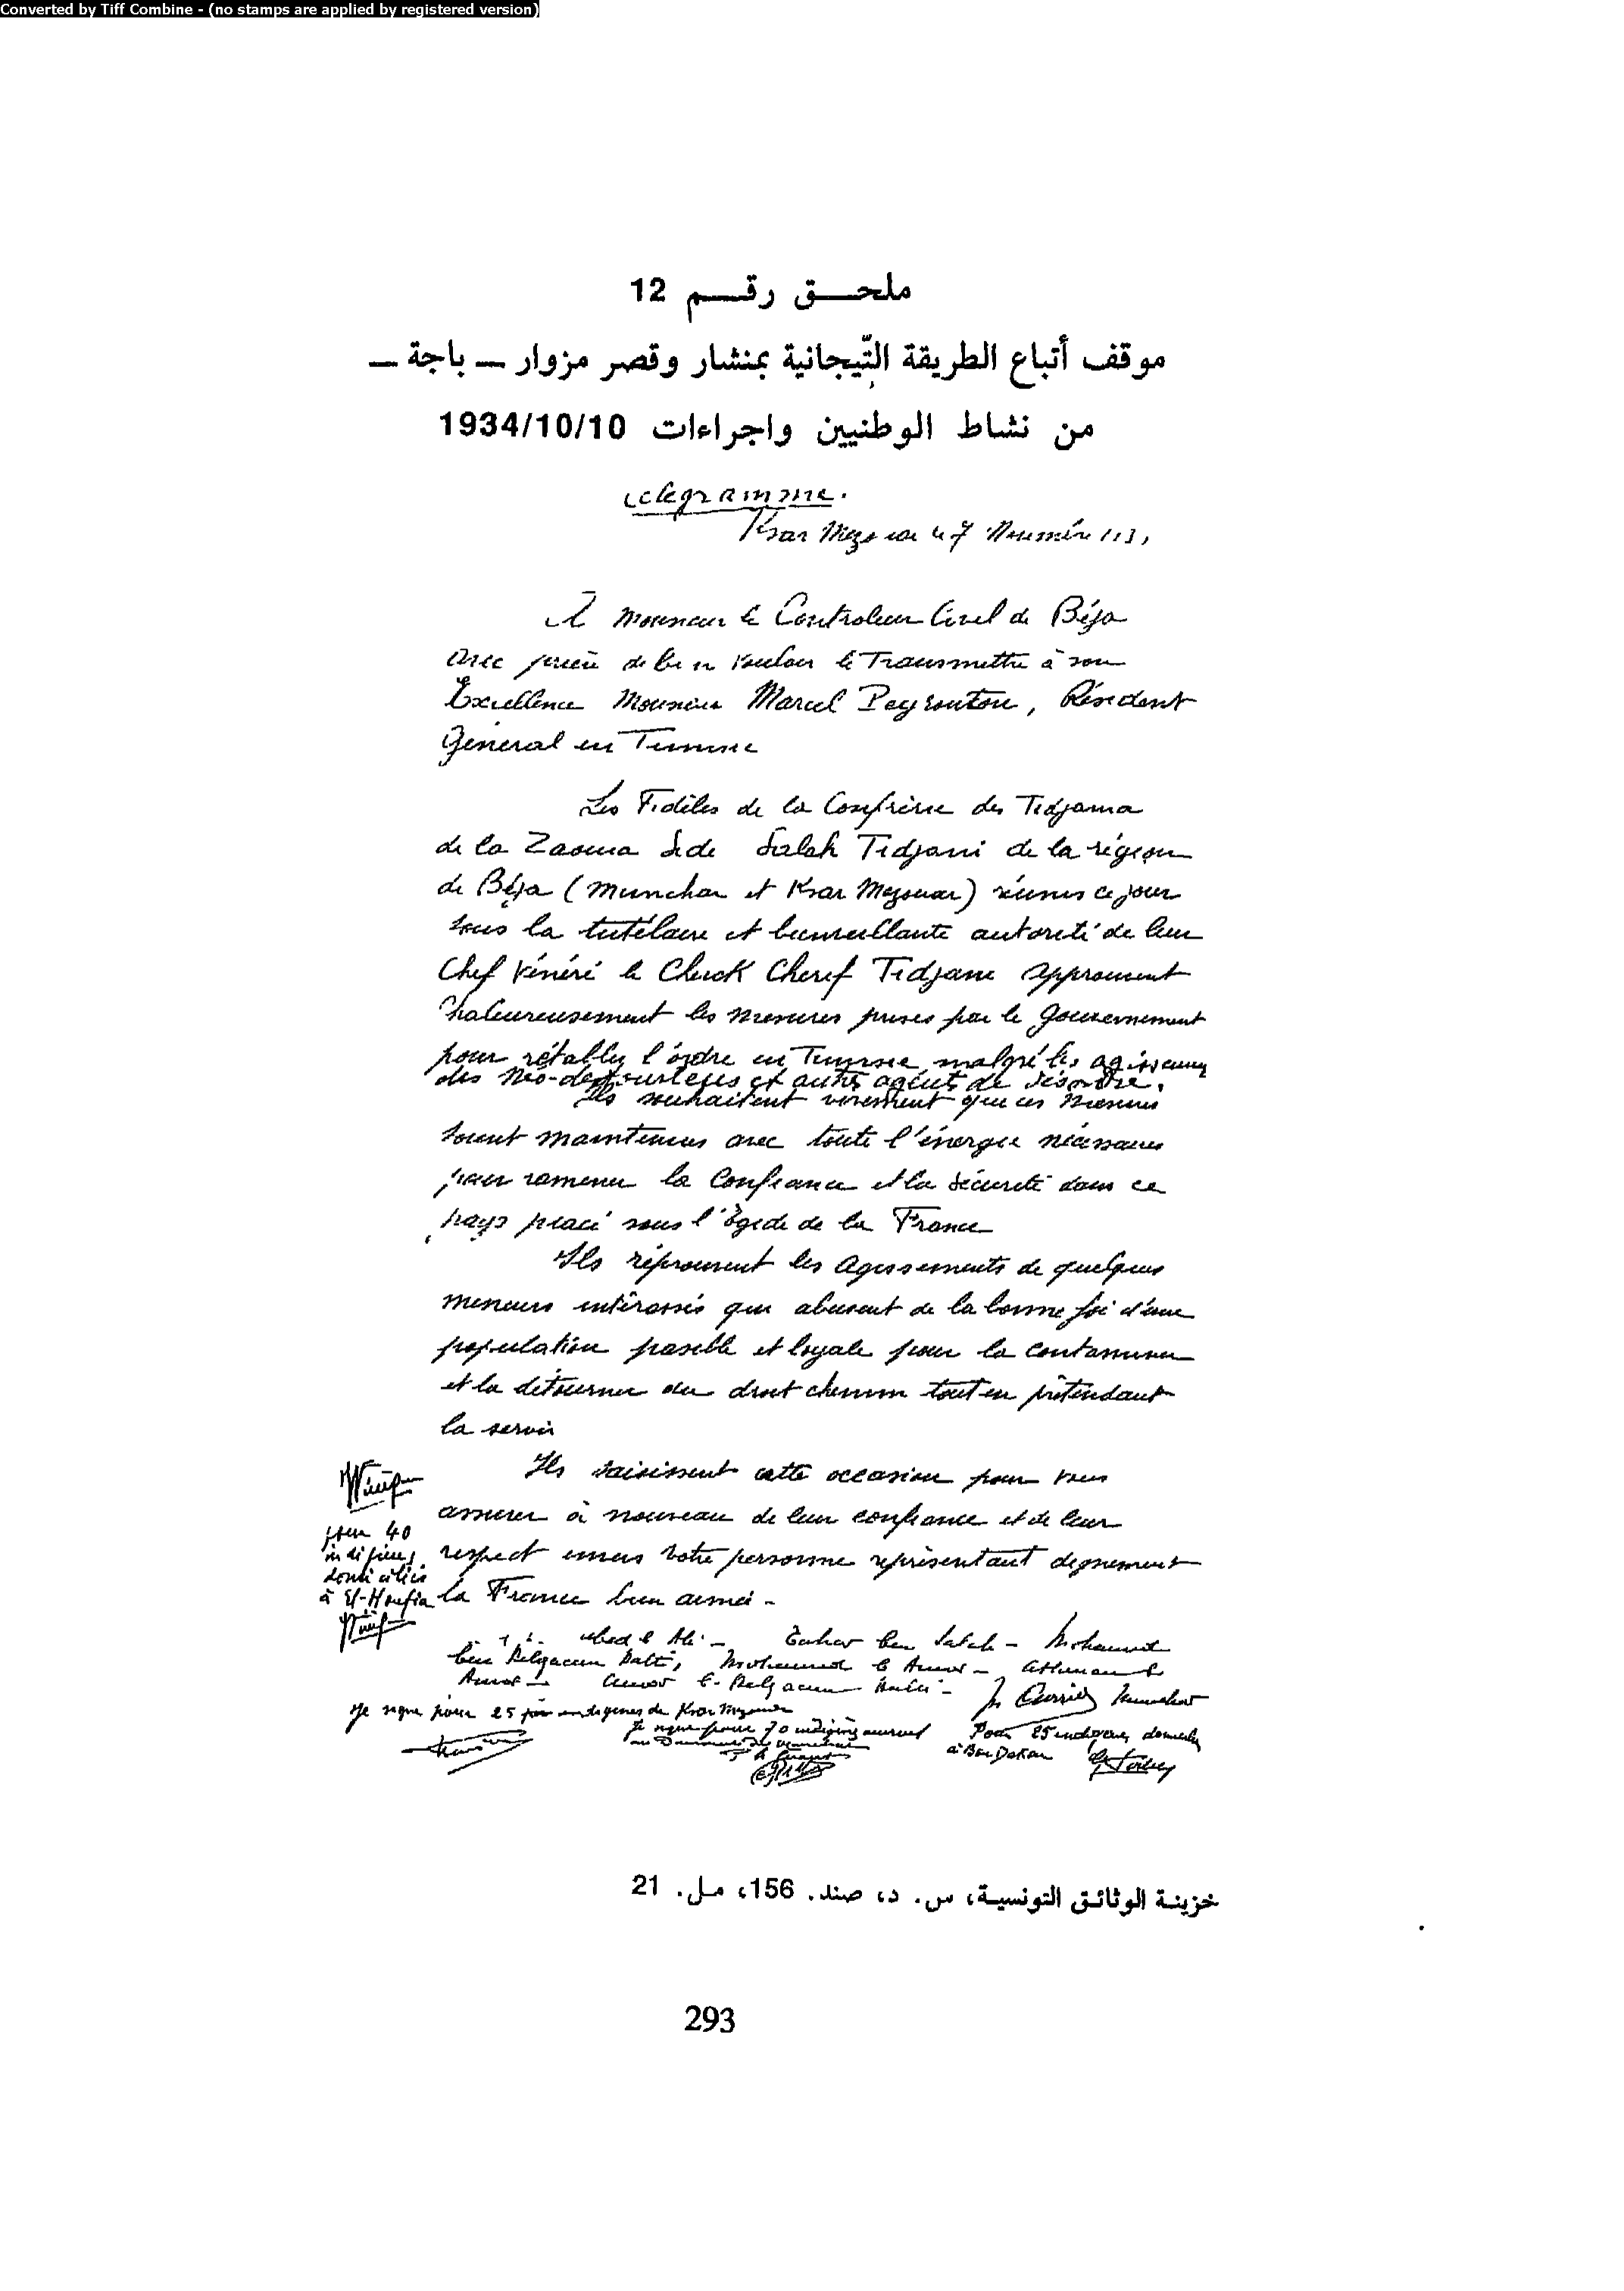 Converted by Tiff Combine - (no stamps are applied by registered version)
ملحق رقم 12
موقف أتباع الطريقة التّيجانية بمنشار وقصر مزوار ــ باجة ــ
من نشاط الوطنيين واجراءات 1934/10/10
Telegramme.
Ksar Mezouar le 7 Novembre
A Monsieur le Controleur Civil de Béja
avec prière de bien vouloir le Transmettre à son
Excellence Monsieur Marcel Peyrouton, Résident
Général en Tunisie
Les Fidèles de la Confrérie des Tidjania
de la Zaouia Sidi Salah Tidjani de la région
de Béja (Munchar et Ksar Mezouar) réunis ce jour
sous la tutélaire et bienveillante autorité de leur
Chef Vénéré le Cheick Cherif Tidjani approuvent
Chaleureusement les mesures prises par le Gouvernement
pour rétablir l'ordre en Tunisie malgré les agissements
des Néo-destouriens et autres agents de désordre.
Ils souhaitent vivement que ces mesures
soient maintenues avec toute l'énergie nécessaire
pour ramener la Confiance et la sécurité dans ce
pays placé sous l'Egide de la France
Ils réprouvent les Agissements de quelques
meneurs intéressés qui abusent de la bonne foi d'une
population paisible et loyale pour la contaminer
et la détourner du droit chemin tout en prétendant
la servir
Ils saisissent cette occasion pour vous
assurer à nouveau de leur confiance et de leur
respect envers votre personne représentant dignement
la France bien aimée -
pour 40
indigènes
domiciliés
à El-Houfia
Tahar ben Salah - Mohamed
ben Belgacem Balti, Mohamed b Amor - Athman b
Amor - Amor b. Belgacem
Je signe pour 25 indigènes de Ksar Mezouar
Je signe pour 70 indigènes
Pour 25 indigènes
à Bou
خزينة الوثائق التونسية، س. د، صند. 156، مل. 21
293